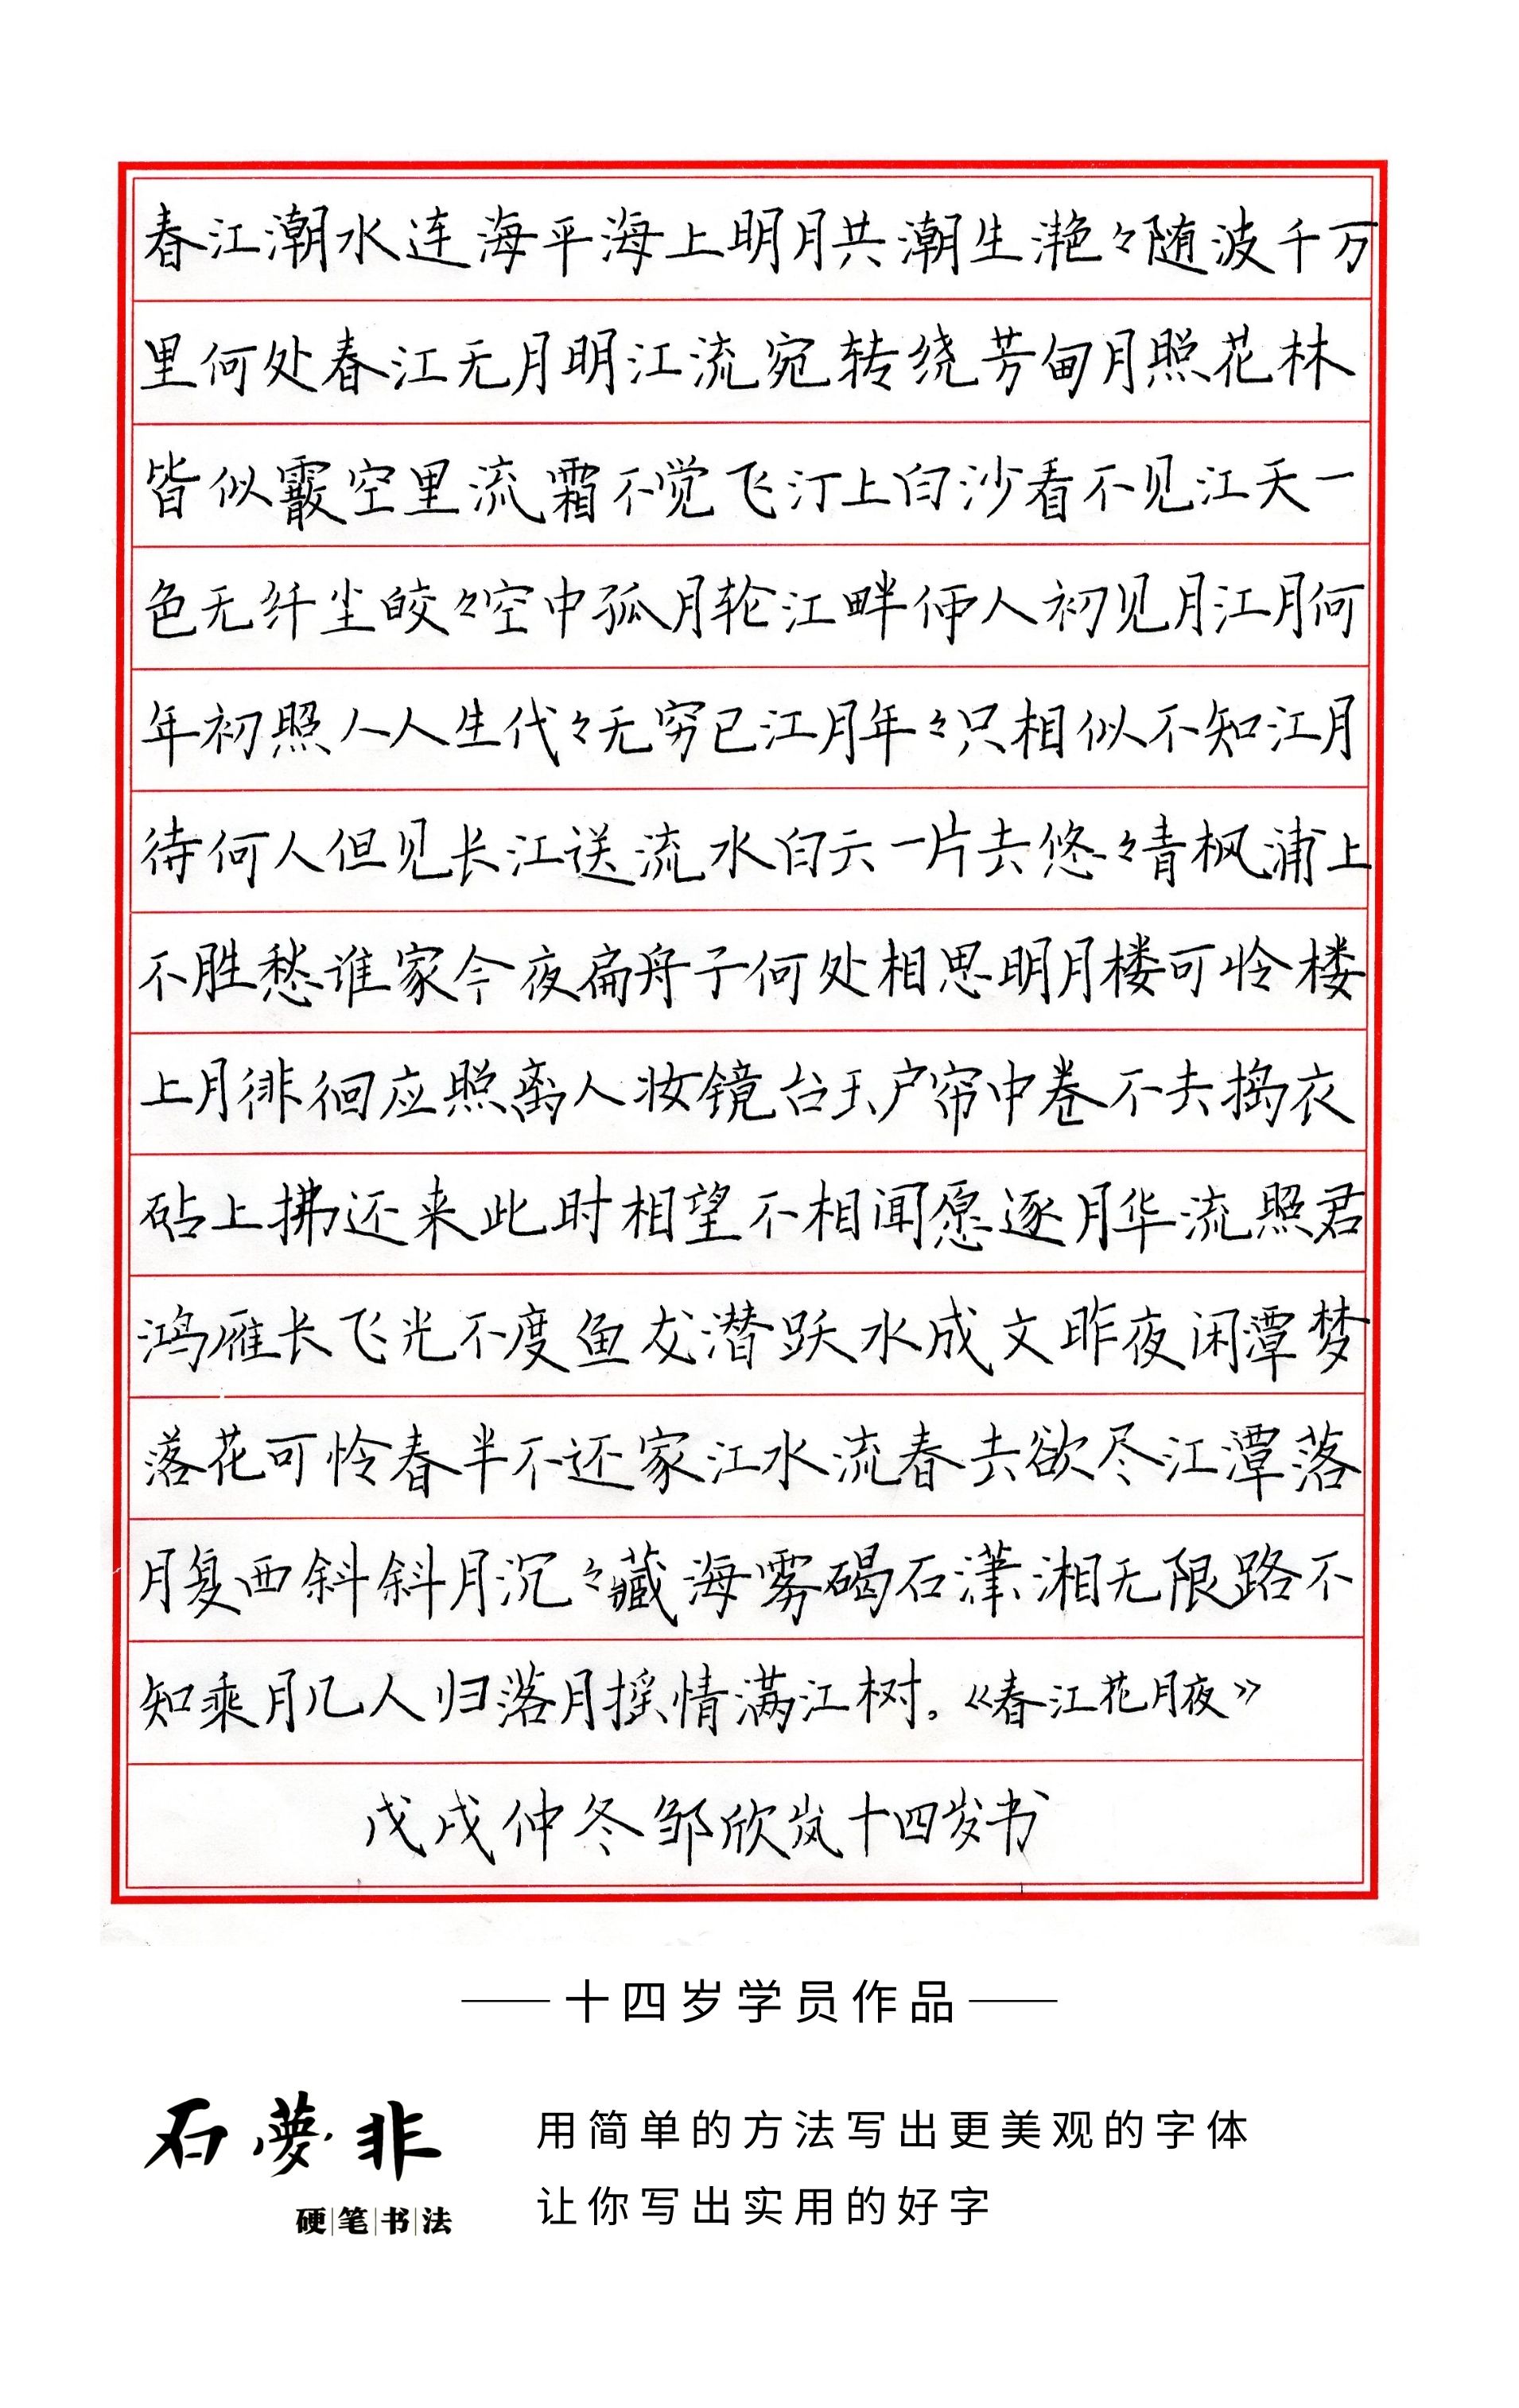 春江潮水连海平海上明月共潮生滟々随波千万
里何处春江无月明江流宛转绕芳甸月照花林
皆似霰空里流霜不觉飞汀上白沙看不见江天一
色无纤尘皎々空中孤月轮江畔何人初见月江月何
年初照人人生代々无穷已江月年々只相似不知江月
待何人但见长江送流水白云一片去悠々青枫浦上
不胜愁谁家今夜扁舟子何处相思明月楼可怜楼
上月徘徊应照离人妆镜台玉户帘中卷不去捣衣
砧上拂还来此时相望不相闻愿逐月华流照君
鸿雁长飞光不度鱼龙潜跃水成文昨夜闲潭梦
落花可怜春半不还家江水流春去欲尽江潭落
月复西斜斜月沉々藏海雾碣石潇湘无限路不
知乘月几人归落月摇情满江树。《春江花月夜》
戊戌仲冬邹欣岚十四岁书
十四岁学员作品
石夢非
硬笔书法
用简单的方法写出更美观的字体
让你写出实用的好字